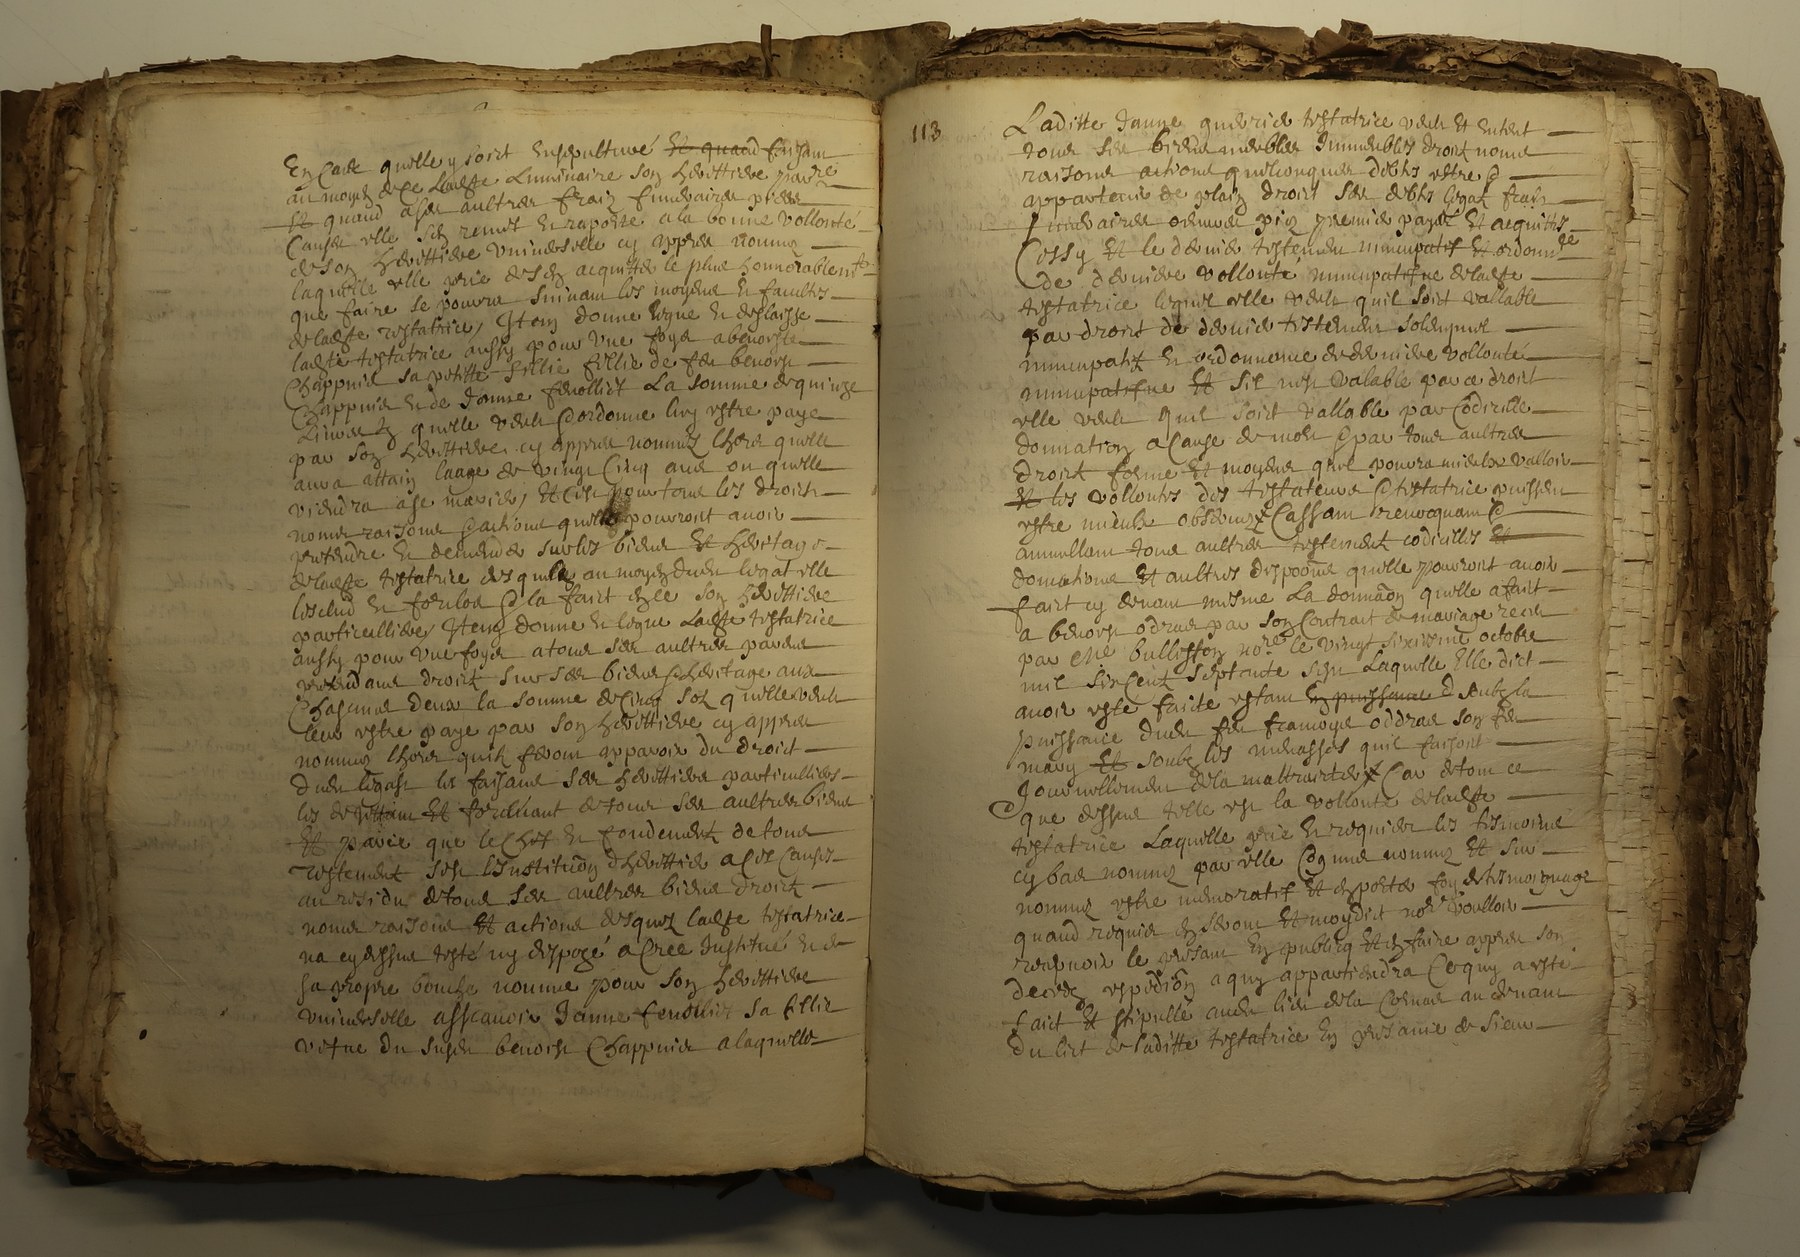 En Cas quelle y soict ensepulturé Et quand faisant
au moyen de ce Ladte Luminaire son herittiere
Et quand a ses aultres fraiz funeraires
Cause elle sen remet En raporte a la bonne vollonté
de son herittiere universelle cy appres nommee
laquelle elle prie de sen acquitter le plus honnorablemt
que faire se pourra suivant les moyens Et facultés
de ladte testatrice, Item donne legue Et deslaisse
ladte testatrice aussy pour une foys a benoiste
Chappuis sa petitte fillie fillie de feu benoist
Chappuis Et de Janne fenolliet La somme de quinze
Livres quelle veult & ordonne luy estre paye
par son herittiere cy appres nommee lhors quelle
aura attain laage de vingt Cinq ans ou quelle
viendra a se marier, Et Cest pour tous les droicts
noms raisons & actions quelle pourroit avoir
pretendre Et demender sur les biens Et heritage
de ladte testatrice desquels au moyen dudt legat elle
lesclud Et forclos & la faict en ce son herittiere
particulliere, Item donne Et legue Ladte testatrice
aussy pour une foys a tous ses aultres parens
pretendans droict sur ses biens & heritage aux
Chascuns deux la somme de Cinq solz quelle veult
leur estre paye par son herittiere cy appres
nommee lhors quils feront apparoir du droict
Dudt legast les faisans ses herittiers particulliers
les dejettant Et forcluant de tous ses aultres biens
Et parce que le Chef Et fondement de tous
Testement est lInstitution dherittier a Ces Causes
au residu de tous ses aultres biens droict
noms raisons Et actions desquels ladte testatrice
na cy dessus testé ny disposé a Cree Institué Et de
sa propre bouche nomme pour son herittiere
universelle asscavoir Janne fenolliet sa fillie
vefve du susdt benoist Chappuis a laquelle
113
Laditte Janne testatrice veult Et Entent
tous ses biens meubles Immeubles droict noms
raisons actions quelconques debts estre &
appartenir de plain droict ses debts legat frais
funeraires œuvres pies premier payés Et acquittés
Cessy Et le dernier testement nuncupatif Et ordonnce
de derniere vollonté nuncupatifve de ladte
testatrice lequel elle veult quil soict vallable
par droict de dernier testement sollempnel
nuncupatif Et ordonnence de derniere vollonté
nuncupatifve Et sil nest valable par ce droict
elle veult quil soict vallable par Codicille
donnation a Cause de mort & par tous aultres
droict forme Et moyens quil pourra mieulx valloir
Et les vollontés des testateurs & testatrice puissent
estre mieulx observez Cassant revocquant &
annullant tous aultres testement codicilles Et
donnations Et aultres dispoons quelle pourroit avoir
faict cy devant mesme La donnaon quelle a fait
a benoist odras par son Contrait de mariage receu
par Me bullistion nore le vingt sixiesme octobre
mil six Centz septante sept Laquelle Elle dict
avoir esté faicte estant En puissance & soubz la
puissance dudt feu francoys oddras son feu
mary Et soubz les menasses quil faisoit
Journellement de la maltraicter Car de tout ce
que dessus telle est la vollonté de ladte
testatrice Laquelle prie Et requier les tesmoins
cy bas nommez par elle Cognus nommez Et sur
nommez estre memoratif Et en porter foy de tesmoignage
quand requis en seront Et moydict nore voulloir
recepvoir le presant En publicq Et en faire appres son
deced expedion a qui appartiendra Ce que a esté
faict Et stipullé audt lieu de la au devant
du lict de laditte testatrice En presance de Sieur